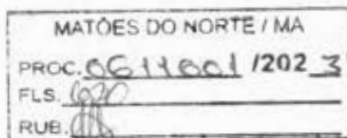 MATÕES DO NORTE / MA
PROC. 0611001 /2023
FLS.
RUB.